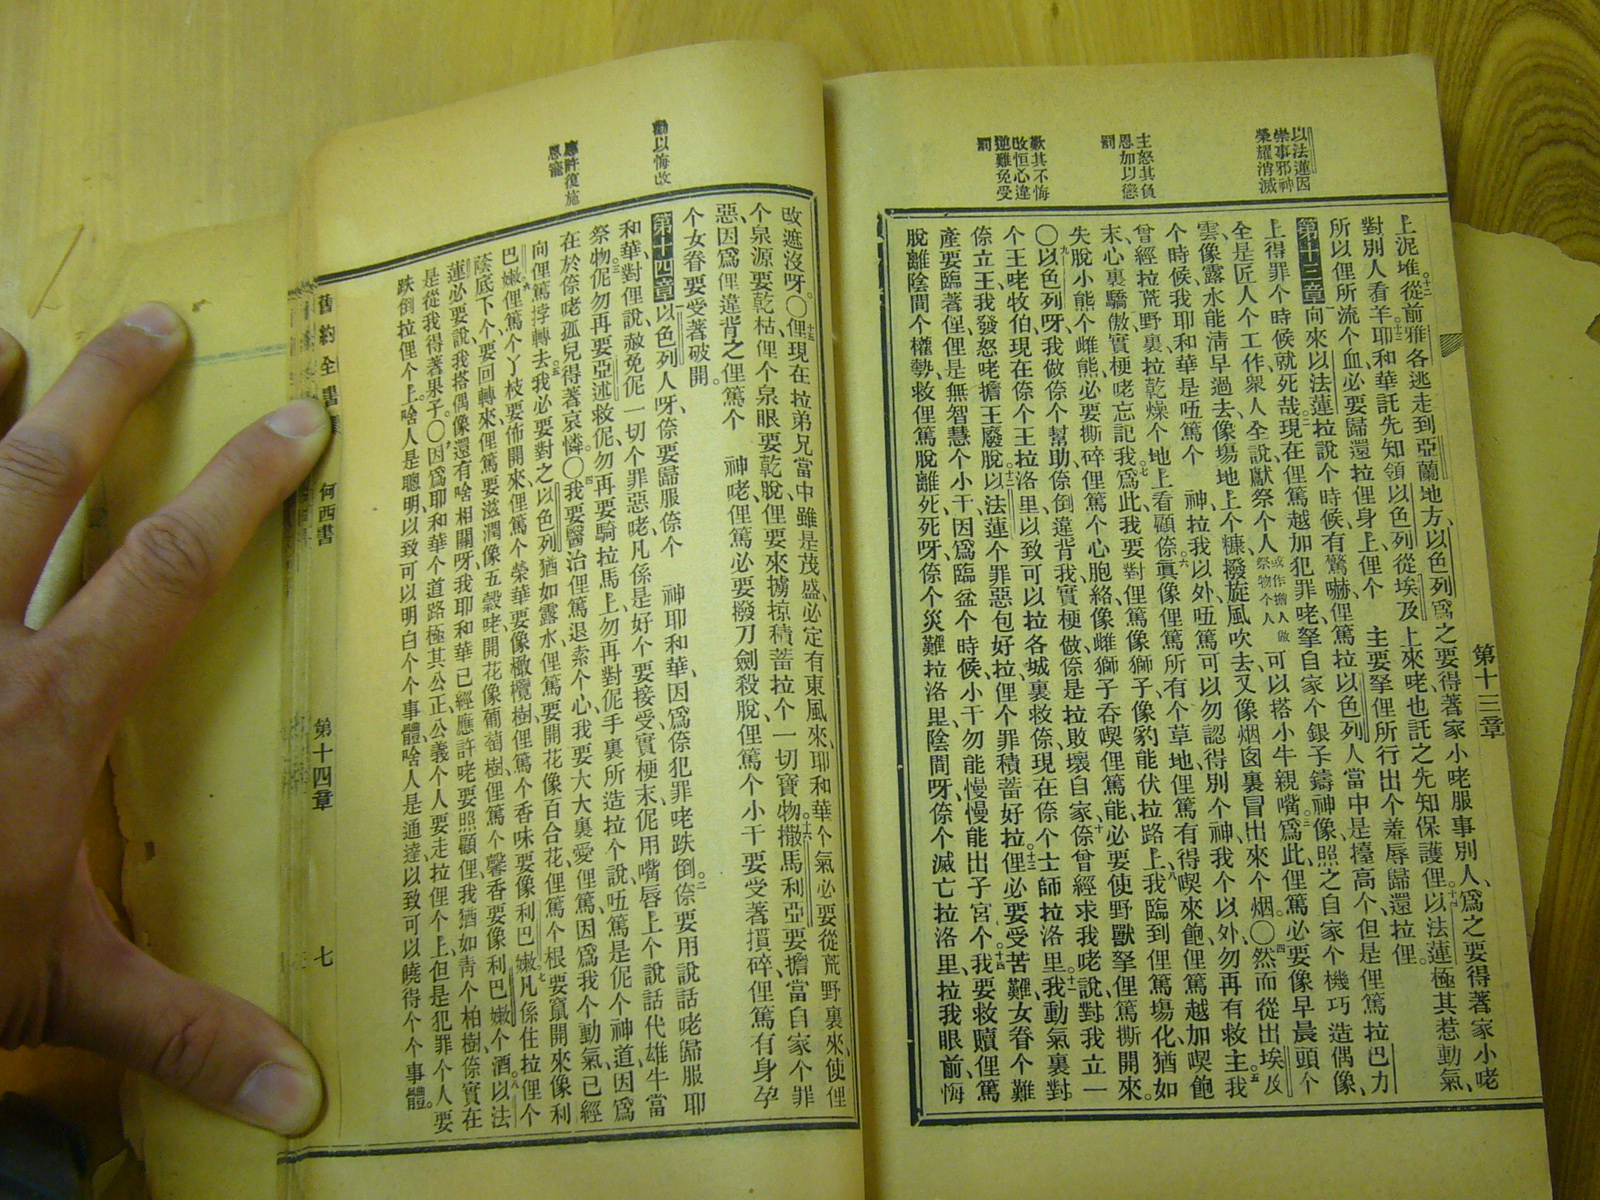 第十三章
以法蓮因
崇事邪神
榮耀消滅
主怒其負
恩加以懲
罰
歎其不悔
改恒心違
逆難免受
罰
上泥堆。十二從前雅各逃走到亞蘭地方、以色列爲之要得著家小咾服事別人、爲之要得著家小咾
對別人看羊。十三耶和華託先知領以色列從埃及上來咾也託之先知保護俚。十四以法蓮極其惹動氣、
所以俚所流个血、必要歸還拉俚身上、俚个 主要拏俚所行出个羞辱歸還拉俚。
第十三章 向來以法蓮拉說个時候、有驚嚇、俚篤拉以色列人當中是擡高个、但是俚篤拉巴力
上得罪个時候就死哉。二現在俚篤越加犯罪咾、拏自家个銀子鑄神像、照之自家个機巧造偶像、
全是匠人个工作、衆人全說獻祭个人、或作擔人做祭物个人可以搭小牛親嘴。三爲此俚篤必要像早晨頭个
雲、像露水能淸早過去、像場地上个糠撥旋風吹去、又像烟囱裏冒出來个烟。〇四然而從出埃及
个時候、我耶和華是唔篤个 神、拉我以外、唔篤可以勿認得別个神、我个以外、勿再有救主。五我
曾經拉荒野裏、拉乾燥个地上看顧倷。六眞像俚篤所有个草地、俚篤有得喫來飽、俚篤越加喫飽
末、心裏驕傲、實梗咾忘記我。七爲此我要對俚篤像獅子、像豹能伏拉路上。八我臨到俚篤場化、猶如
失脫小熊个雌熊、必要撕碎俚篤个心胞絡、像雌獅子吞喫俚篤能、必要使野獸拏俚篤撕開來。
〇九以色列呀、我做倷个幫助、倷倒違背我、實梗做、倷是拉敗壞自家。十倷曾經求我咾說、對我立一
个王咾牧伯、現在倷个王拉洛里、以致可以拉各城裏救倷、現在倷个士師拉洛里。十一我動氣裏對
倷立王、我發怒咾擔王廢脫。十二以法蓮个罪惡包好拉、俚个罪積蓄好拉。十三俚必要受苦難、女眷个難
產要臨著俚、俚是無智慧个小干、因爲臨盆个時候、小干勿能慢慢能出子宮个。十四我要救贖俚篤
脫離陰間个權勢、救俚篤脫離死、死呀、倷个災難拉洛里、陰間呀、倷个滅亡拉洛里、拉我眼前、悔
勸以悔改
應許復施
恩寵
改遮沒呀。〇十五俚現在拉弟兄當中、雖是茂盛、必定有東風來、耶和華个氣必要從荒野裏來、使俚
个泉源要乾枯、俚个泉眼要乾脫、俚要來擄掠積蓄拉个一切寶物。十六撒馬利亞要擔當自家个罪
惡、因爲俚違背之俚篤个 神咾、俚篤必要撥刀劍殺脫、俚篤个小干要受著摜碎、俚篤有身孕
个女眷要受著破開。
第十四章 以色列人呀、倷要歸服倷个 神耶和華、因爲倷犯罪咾跌倒。二倷要用說話咾歸服耶
和華、對俚說、赦免伲一切个罪惡咾、凡係是好个、要接受、實梗末伲用嘴唇上个說話代雄牛當
祭物。三伲勿再要亞述救伲、勿再要騎拉馬上、勿再對伲手裏所造拉个說、唔篤是伲个神道、因爲
在於倷咾孤兒得著哀憐。〇四我要醫治俚篤退索个心、我要大大裏愛俚篤、因爲我个動氣已經
向俚篤挬轉去。五我必要對之以色列猶如露水、俚篤要開花像百合花、俚篤个根要竄開來像利
巴嫩。六俚篤个丫枝要佈開來、俚篤个榮華要像橄欖樹、俚篤个香味要像利巴嫩。七凡係住拉俚个
蔭底下个、要回轉來、俚篤要滋潤像五穀咾開花像葡萄樹、俚篤个馨香要像利巴嫩个酒。八以法
蓮必要說、我搭偶像還有啥相關呀、我耶和華已經應許咾要照顧俚、我猶如靑个柏樹、倷實在
是從我得著果子。〇九因爲耶和華个道路極其公正、公義个人要走拉俚个上、但是犯罪个人要
跌倒拉俚个上。啥人是聰明、以致可以明白个个事體、啥人是通達、以致可以曉得个个事體。
舊約全書 何西書 第十四章 七